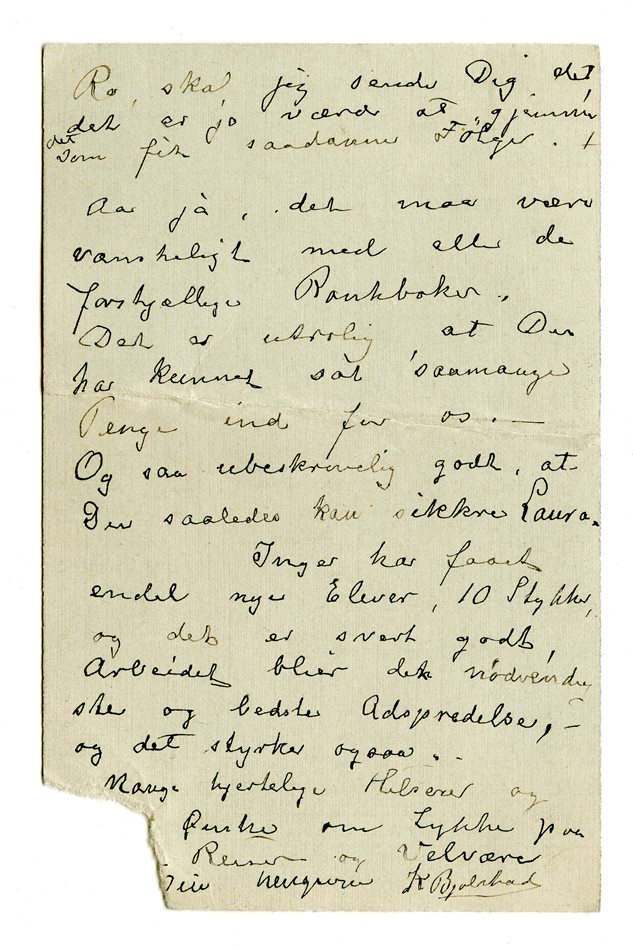 Ro, skal jeg sende Dig det
det er jo værd at gjemme
det
som fik saadanne Følger. +
Aa ja, det maa være
vanskeligt med alle de
forskjællige Bankbøker.
Det er utrolig at Du
har kunnet sat saamange
Penge ind for os. —
Og saa ubeskrivelig godt, at
Du saaledes kan sikkre Laura.
Inger har faaet
endel nye Elever, 10 Stykker,
og det er svert godt,
Arbeidet blir det nödvendig
ste og bedste Adspredelse, —
og det styrker ogsaa..
Mange hjertelige Hilsener og
Ønske om Lykke paa
Reisen og Velvære
Din hengivne K Bjølstad